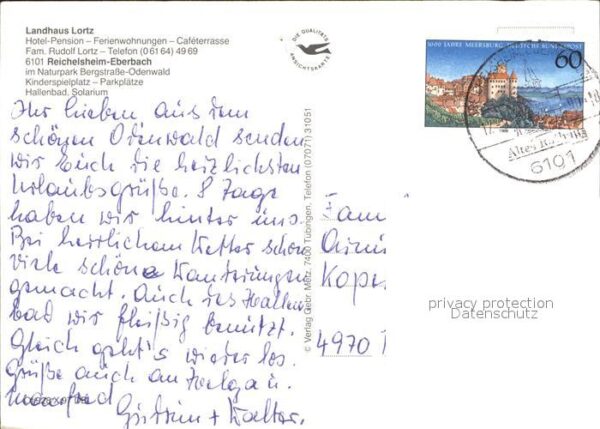 Landhaus Lortz
Hotel-Pension – Ferienwohnungen – Caféterrasse
Fam. Rudolf Lortz – Telefon (0 61 64) 49 69
6101 Reichelsheim-Eberbach
im Naturpark Bergstraße-Odenwald
Kinderspielplatz – Parkplätze
Hallenbad, Solarium
DIE QUALITÄTS
ANSICHTSKARTE
1000 JAHRE MEERSBURG DEUTSCHE BUNDESPOST
60
6101
Ihr lieben aus dem
schönen Odenwald senden
wir Euch die herzlichsten
Urlaubsgrüße. 8 Tage
haben wir hinter uns.
Bei herrlichem Wetter schon
viele schöne Wanderungen
gemacht. Auch das Hallen
bad wir fleißig benützt.
Gleich geht's wieder los.
Grüße auch an Helga u.
Gudrun + Walter.
© Verlag Gebr. Metz, 7400 Tübingen, Telefon (07071) 31051
Fam
Kope
4970
privacy protection
Datenschutz